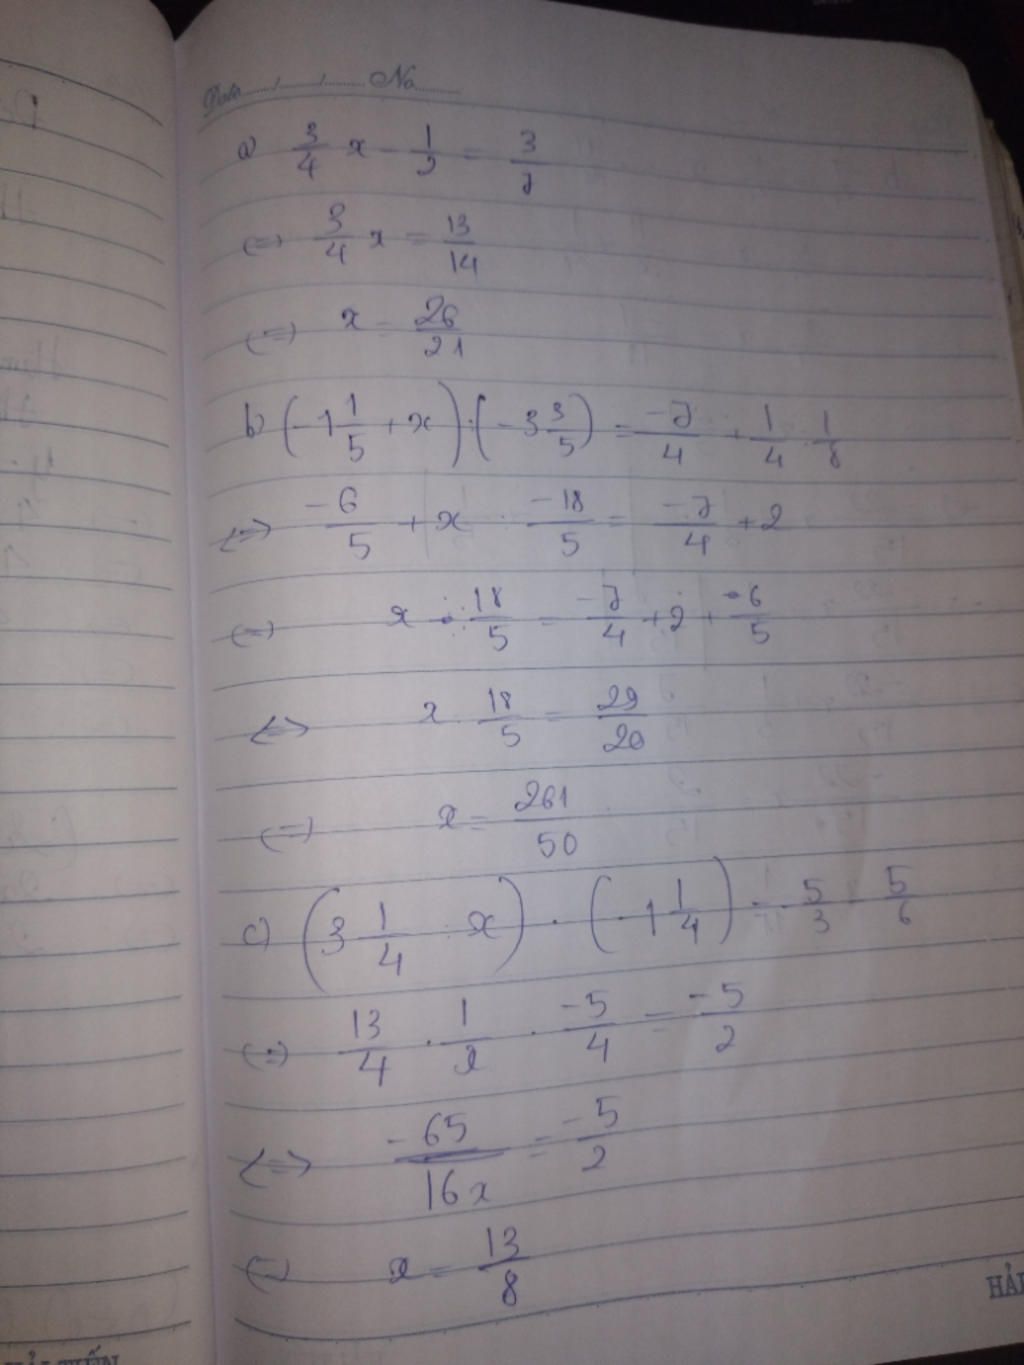 Date ...../...../..... No.......
a) 3/4 x - 1/2 = 3/7
(=) 3/4 x = 13/14
(=) x = 26/21
b) (-1 1/5 + x) : (-3 3/5) = -7/4 + 1/4 : 1/8
<=> -6/5 + x : -18/5 = -7/4 + 2
(=) x : 18/5 = -7/4 + 2 + 6/5
<=> x : 18/5 = 29/20
(=) x = 261/50
c) (3 1/4 : x) . (-1 1/4) = -5/3 - 5/6
(=) 13/4 . 1/x . -5/4 = -5/2
<=> -65/16x = -5/2
(=) x = 13/8